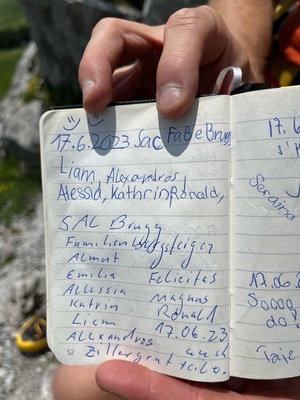 17.6.2023 Sac FaBe Brugg
Liam, Alexandros,
Alessia, Kathrin Ronald,
SAC Brugg
Familienbergsteigen
Almut
Emilia Felicitas
Alessia Magnus
Katrin Ronald
Liam 17.06.23
Alexandros auch
Zillergrat teilw.
52
17.6
Seraina
17.06.2